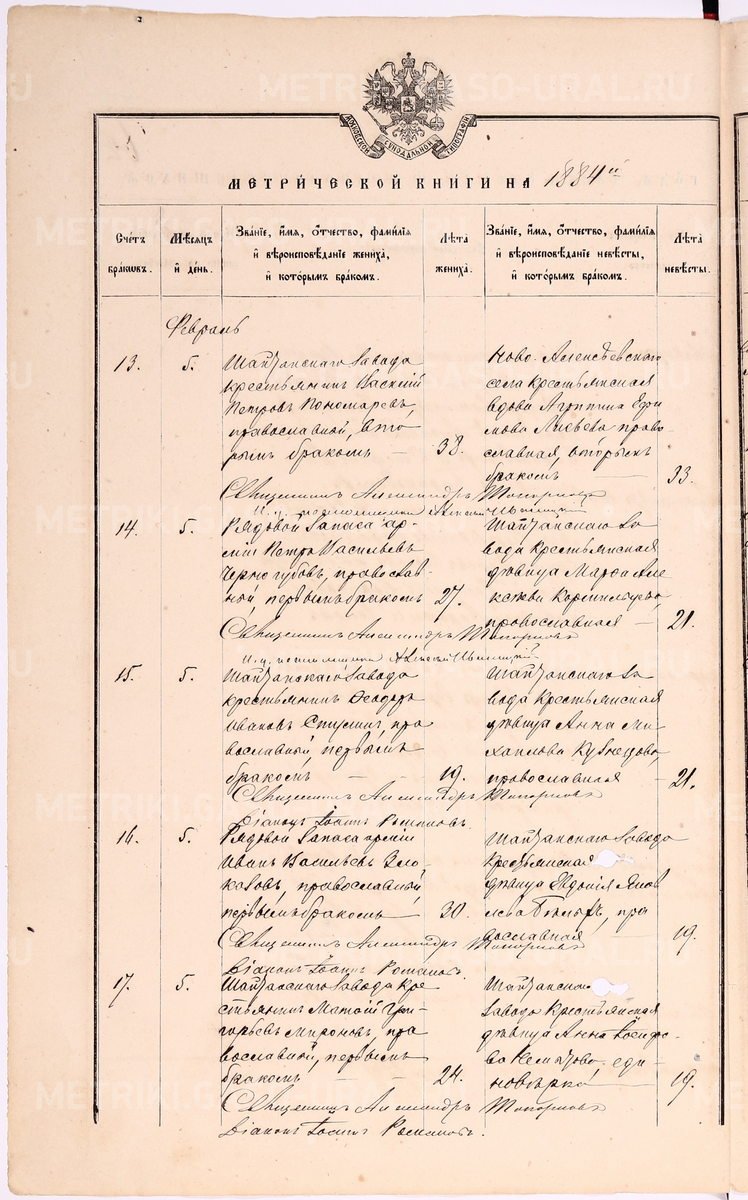 МОСКОВСКОЙ СѴНОДАЛЬНОЙ ТИПОГРАФІИ
МЕТРИ́ЧЕСКОЙ КНИ́ГИ НА 1884й
Счетъ браковъ.
Мѣсяцъ и день.
Званіе, имя, отчество, фамилія и вѣроисповѣданіе жениха, и которымъ бракомъ.
Лѣта жениха.
Званіе, имя, отчество, фамилія и вѣроисповѣданіе невѣсты, и которымъ бракомъ.
Лѣта невѣсты.
Февраль
13.
5.
Шайтанскаго Завода
крестьянинъ Василій
Петровъ Пономаревъ,
православный, вто
рымъ бракомъ —
38.
Ново-Алексѣевскаго
села крестьянская
вдова Агриппина Ефи
мова православная, вторымъ
бракомъ —
33.
Священникъ Александръ Топорковъ
И. д. псаломщика Алексій
14.
5.
Рядовой Запаса ар-
міи Петръ Васильевъ
Черногубовъ, православ-
ной, первымъ бракомъ
27.
Шайтанскаго За
вода крестьянская
дѣвица Марѳа Але
ксѣева
православная —
21.
Священникъ Александръ Топорковъ
И. д. псаломщика Алексій
15.
5.
Шайтанскаго Завода
крестьянинъ Ѳеодоръ
Ивановъ пра
вославный, первымъ
бракомъ —
19.
Шайтанскаго За
вода крестьянская
дѣвица Анна Ми
хаилова Кузнецова,
православная —
21.
Священникъ Александръ Топорковъ
Діаконъ Іоаннъ Романовъ.
16.
5.
Рядовой Запаса арміи
Иванъ Васильевъ Зло-
казовъ, православный
первымъ бракомъ
30.
Шайтанскаго Завода
крестьянская
дѣвица Евдокія Яков
лева пра
вославная
19.
Священникъ Александръ Топорковъ
Діаконъ Іоаннъ Романовъ.
17.
5.
Шайтанскаго Завода кре
стьянинъ Матѳій Гри-
горьевъ Мироновъ, пра
вославный, первымъ
бракомъ — —
24.
Шайтанскаго
Завода крестьянская
дѣвица Анна Іосифо-
ва еди-
новѣрка —
19.
Священникъ Александръ Топорковъ
Діаконъ Іоаннъ Романовъ.